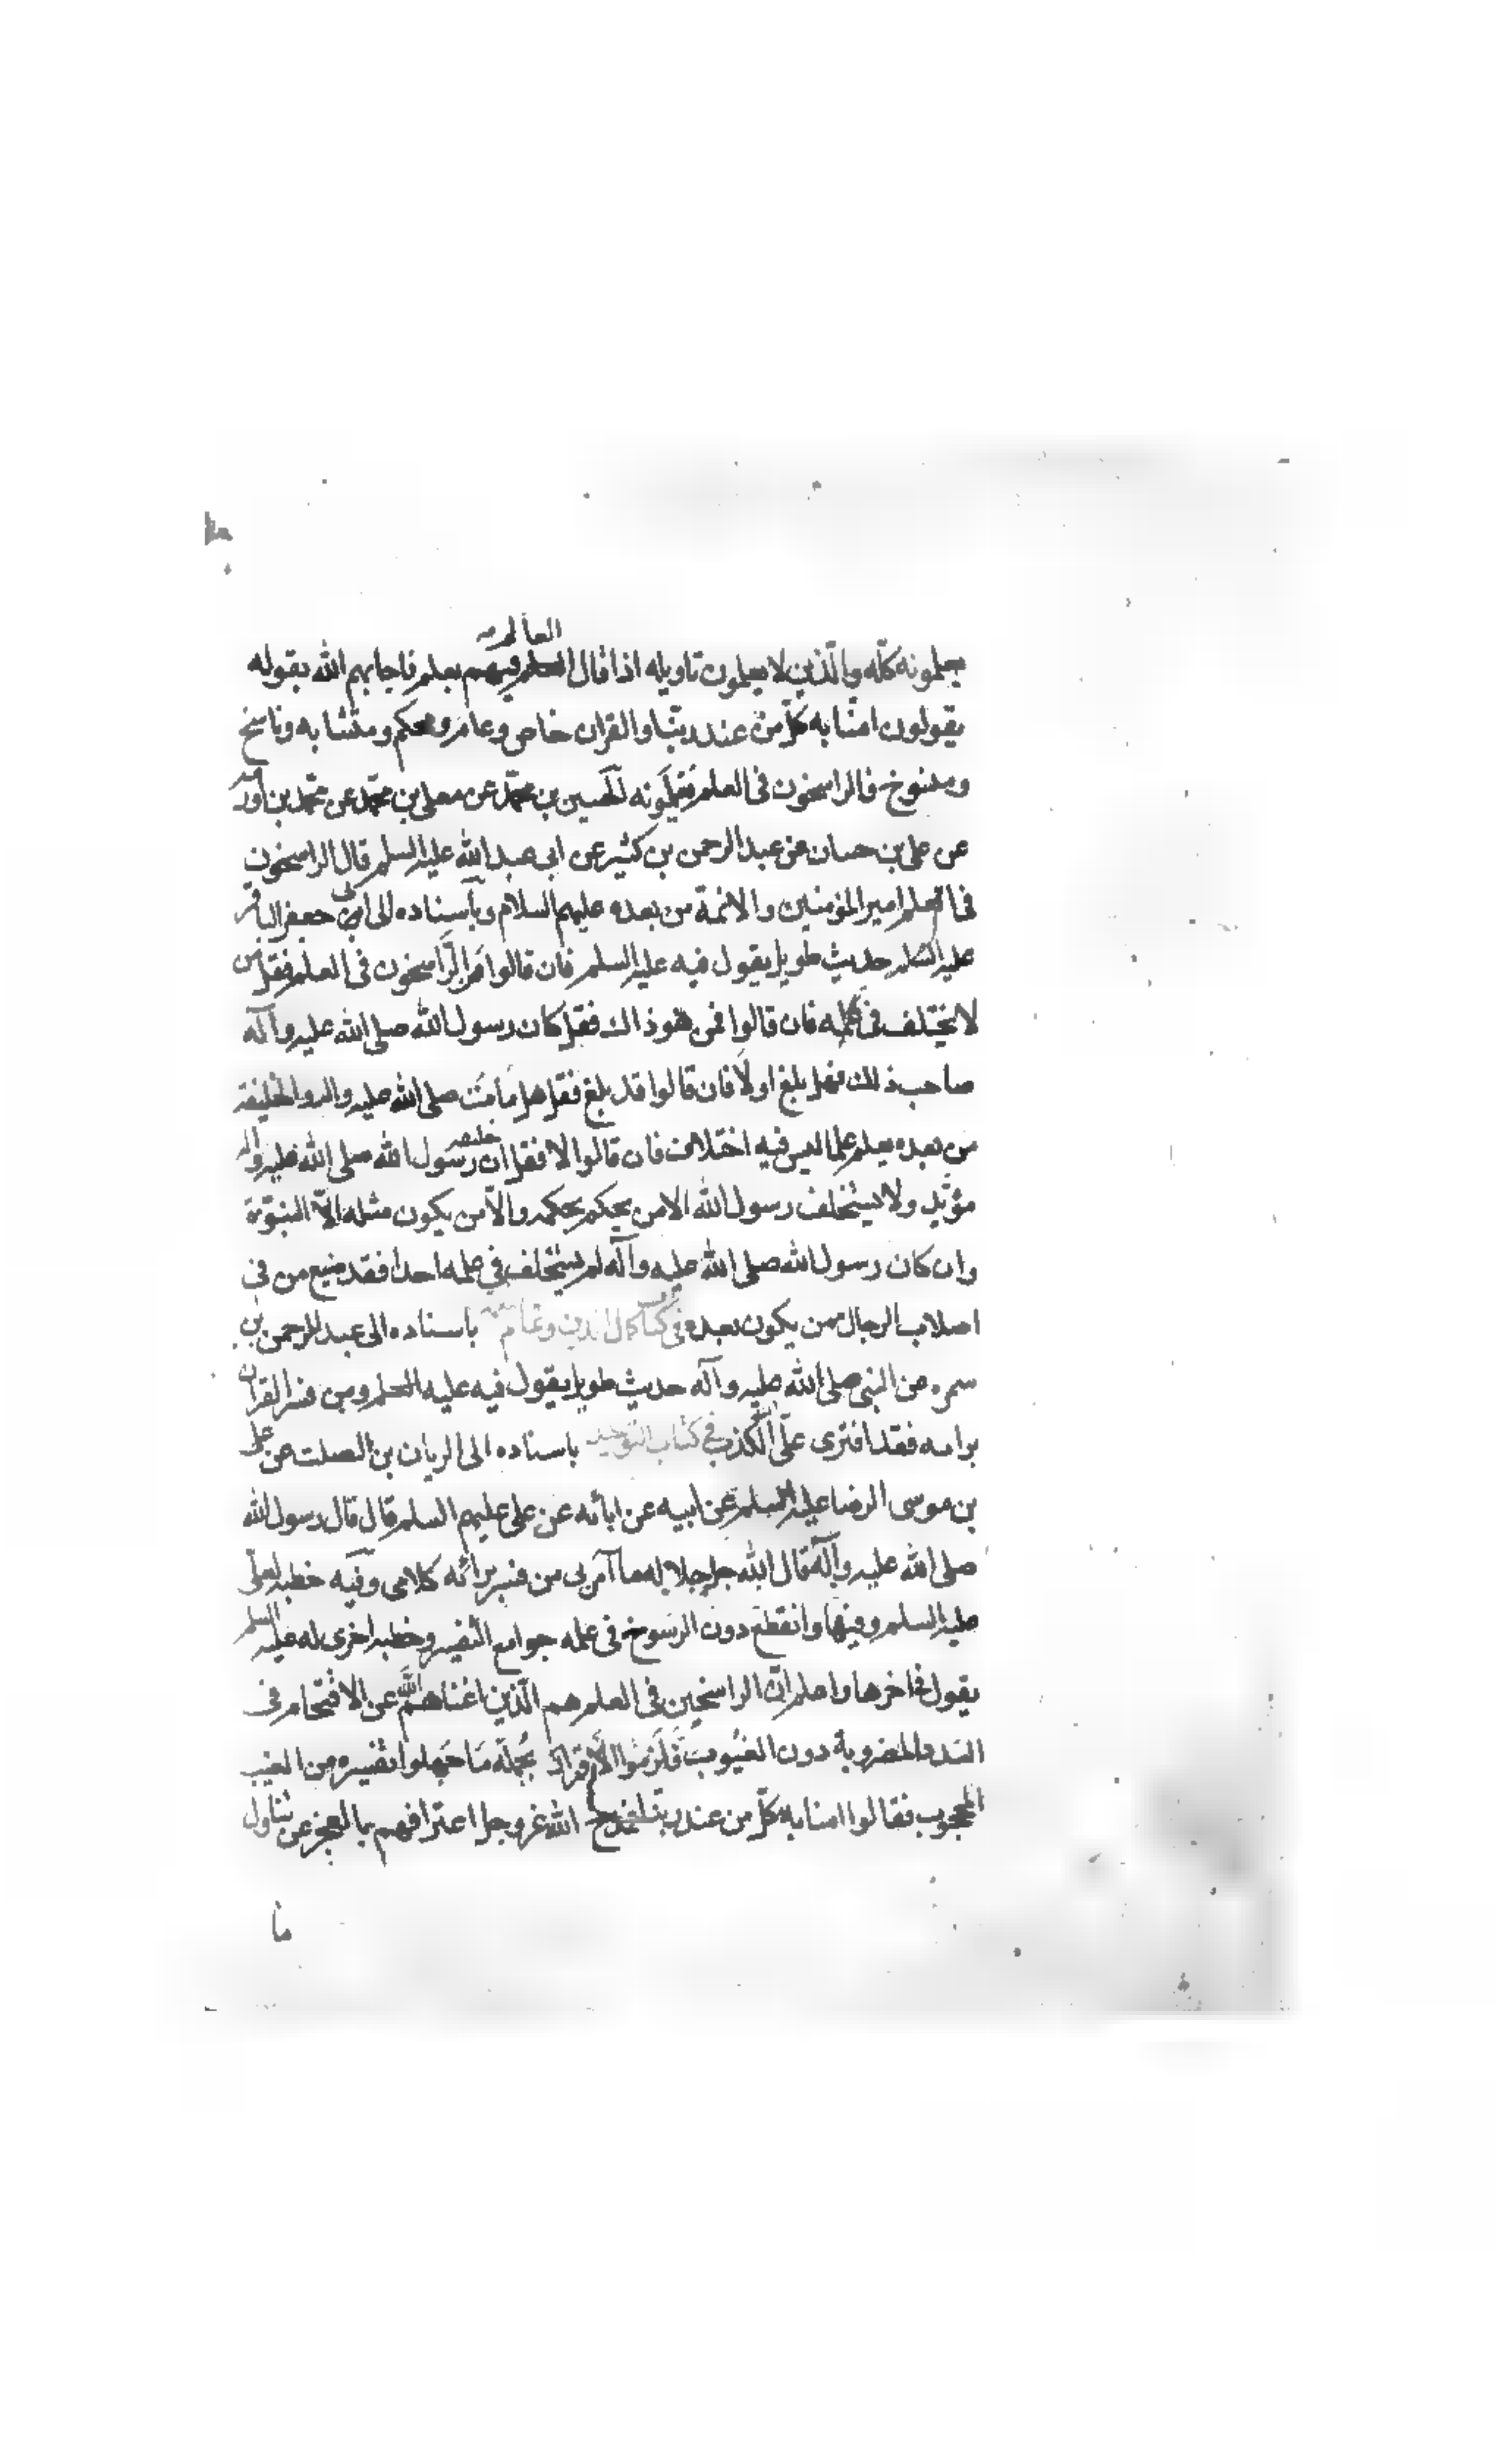 العالم
يعلمونه كله والذين لا يعلمون تاويله اذا قال العلم فيهم بعلم فاجابهم الله بقوله
يقولون امنا به كل من عند ربنا والقران خاص وعام ومحكم ومتشابه وناسخ
ومنسوخ فالراسخون فى العلم يعلمونه الحسين بن محمد عن معلى بن محمد عن محمد بن اورمه
عن على بن حسان عن عبد الرحمن بن كثير عن ابى عبد الله عليه السلم قال الراسخون
فى العلم امير المؤمنين والائمة من بعده عليهم السلام وباسناده الى ابى جعفر الباقر
عليه السلم حديث طويل يقول فيه عليه السلم فان قالوا من الراسخون فى العلم فقل من
لا يختلف فى علمه فان قالوا فمن هو ذاك فقل كان رسول الله صلى الله عليه وآله
صاحب ذلك فهل بلغ اولا فان قالوا قد بلغ فقل هل مات صلى الله عليه واله والخليفة
من بعده يعلم علما ليس فيه اختلاف فان قالوا لا فقل ان خليفه رسول الله صلى الله عليه واله
مؤيد ولا يستخلف رسول الله الا من يحكم بحكمه والا من يكون مثله الا النبوة
وان كان رسول الله صلى الله عليه وآله لم يستخلف فى علمه احدا فقد ضيع من فى
اصلاب الرجال ممن يكون بعده فى كتاب كمال الدين وتمام باسناده الى عبد الرحمن بن
سمره عن النبى صلى الله عليه وآله حديث طويل يقول فيه عليه السلم ومن فسر القران
برايه فقد افترى على الله الكذب فى كتاب التوحيد باسناده الى الريان بن الصلت عن على
بن موسى الرضا عليه السلم عن ابيه عن ابائه عن على عليهم السلم قال قال رسول الله
صلى الله عليه وآله قال الله جل جلاله ما آمن بى من فسر برائه كلامى وفيه خطبة لعلى
عليه السلم وفيها وانقطع دون الرسوخ فى علمه جوامع التفسير وخطبه اخرى له عليه السلم
يقول فى اخرها واعلم ان الراسخين فى العلم هم الذين اغناهم الله عن الاقتحام فى
السدد المضروبة دون الغيوب فلزموا الاقرار بجملة ما جهلوا تفسيره من الغيب
المحجوب فقالوا امنا به كل من عند ربنا فمدح الله عز وجل اعترافهم بالعجز عن تناول
ما